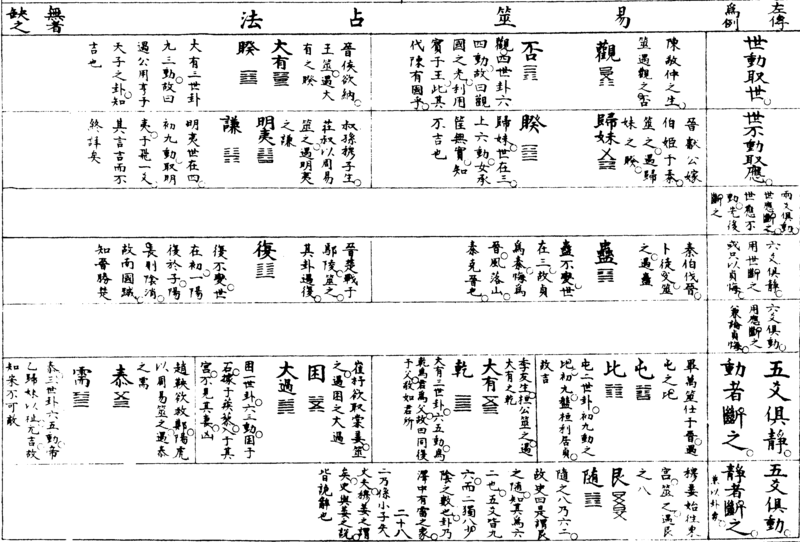 左傳
為例
易筮占法
無者
缺之
世動取世
陳敬仲之生
筮遇觀之否
觀
否
觀四世卦六
四動故曰觀
國之光利用
賓于王此其
代陳有國乎
晉侯欲納
王筮遇大
有之睽
大有
睽
大有三世卦
九三動故曰
遇公用亨于
天子之卦知
吉也
世不動取應
晉獻公嫁
伯姬于秦
筮之遇歸
妹之睽
歸妹
睽
歸妹世在三
上六動女承
筐無實知
不吉也
叔孫穆子生
莊叔以周易
筮之遇明夷
之謙
明夷
謙
明夷世在四
初九動取明
夷于飛一爻
其言吉而不
終詳矣
兩爻俱動
世應斷之
世應不
動先後
斷之
六爻俱靜
用世斷之
或只以貞悔
秦伯伐晉
卜徒父筮
之遇蠱
蠱
蠱不變世
在三故貞
為秦悔為
晉風落山
秦克晉也
晉楚戰于
鄢陵筮之
其卦遇復
復
復不變世
在初一陽
復於子陽
長則陰消
故南國蹙
知晉勝楚
六爻俱動
用應斷之
兼論貞悔
五爻俱靜
動者斷之
畢萬筮仕于晉遇
屯之比
屯
比
屯二世卦初九動之
比初九盤桓利居貞
故吉
季友生桓公筮之遇
大有之乾
大有
乾
大有三世卦六五動為
乾為君為父故曰同復
于父敬如君所
崔杼欲取棠姜筮
之遇困之大過
困
大過
困一世卦六三動困于
石據于蒺藜入于其
宮不見其妻凶
趙鞅欲救鄭陽虎
以周易筮之遇泰
之需
泰
需
泰三世卦六五動帝
乙歸妹以祉元吉故
知宋不可敵
五爻俱動
靜者斷之
兼以卦象
穆姜始往東
宮筮之遇艮
之八
艮
隨
隨之八乃六二
故史曰是謂艮
之隨知其為六
二也五爻皆九
六而二獨八少
陰之數也卦乃
澤中有雷之象
二十八
二乃係小子失
丈夫穆姜之謂
矣史與姜之說
皆詭辭也